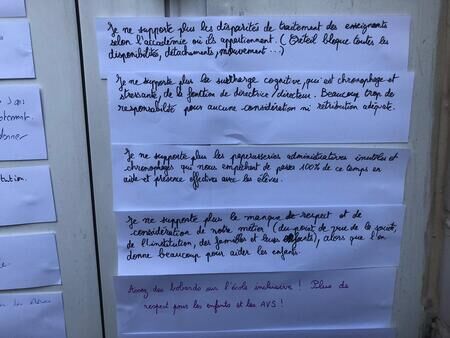 Je ne supporte plus les disparités de traitement des enseignants
selon l'académie où ils appartiennent. (Créteil bloque toutes les
disponibilités, détachements, mouvement...)
Je ne supporte plus la surcharge cognitive, qui est chronophage et
stressante, de la fonction de directrice/directeur. Beaucoup trop de
responsabilité pour aucune considération ni rétribution adéquate.
Je ne supporte plus les paperasseries administratives inutiles et
chronophages qui nous empêchent de passer 100% de ce temps en
aide et présence effectives avec les élèves.
Je ne supporte plus le manque de respect et de
considération de notre métier (du point de vue de la société,
de l'institution, des familles et leurs enfants), alors que l'on
donne beaucoup pour aider les enfants.
Assez des bobards sur l'école inclusive ! Plus de
respect pour les enfants et les AVS !